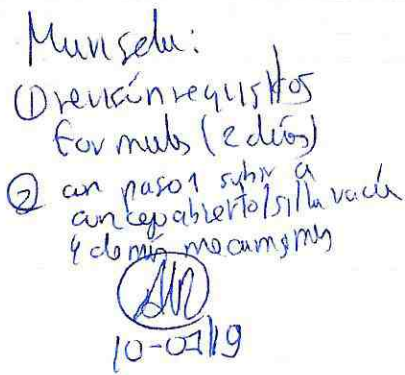 ① revisión requisitos
formales (2 días)
② con paso 1 subir a
concejo abierto/silla vacía
y demás mecanismos
10-07/19